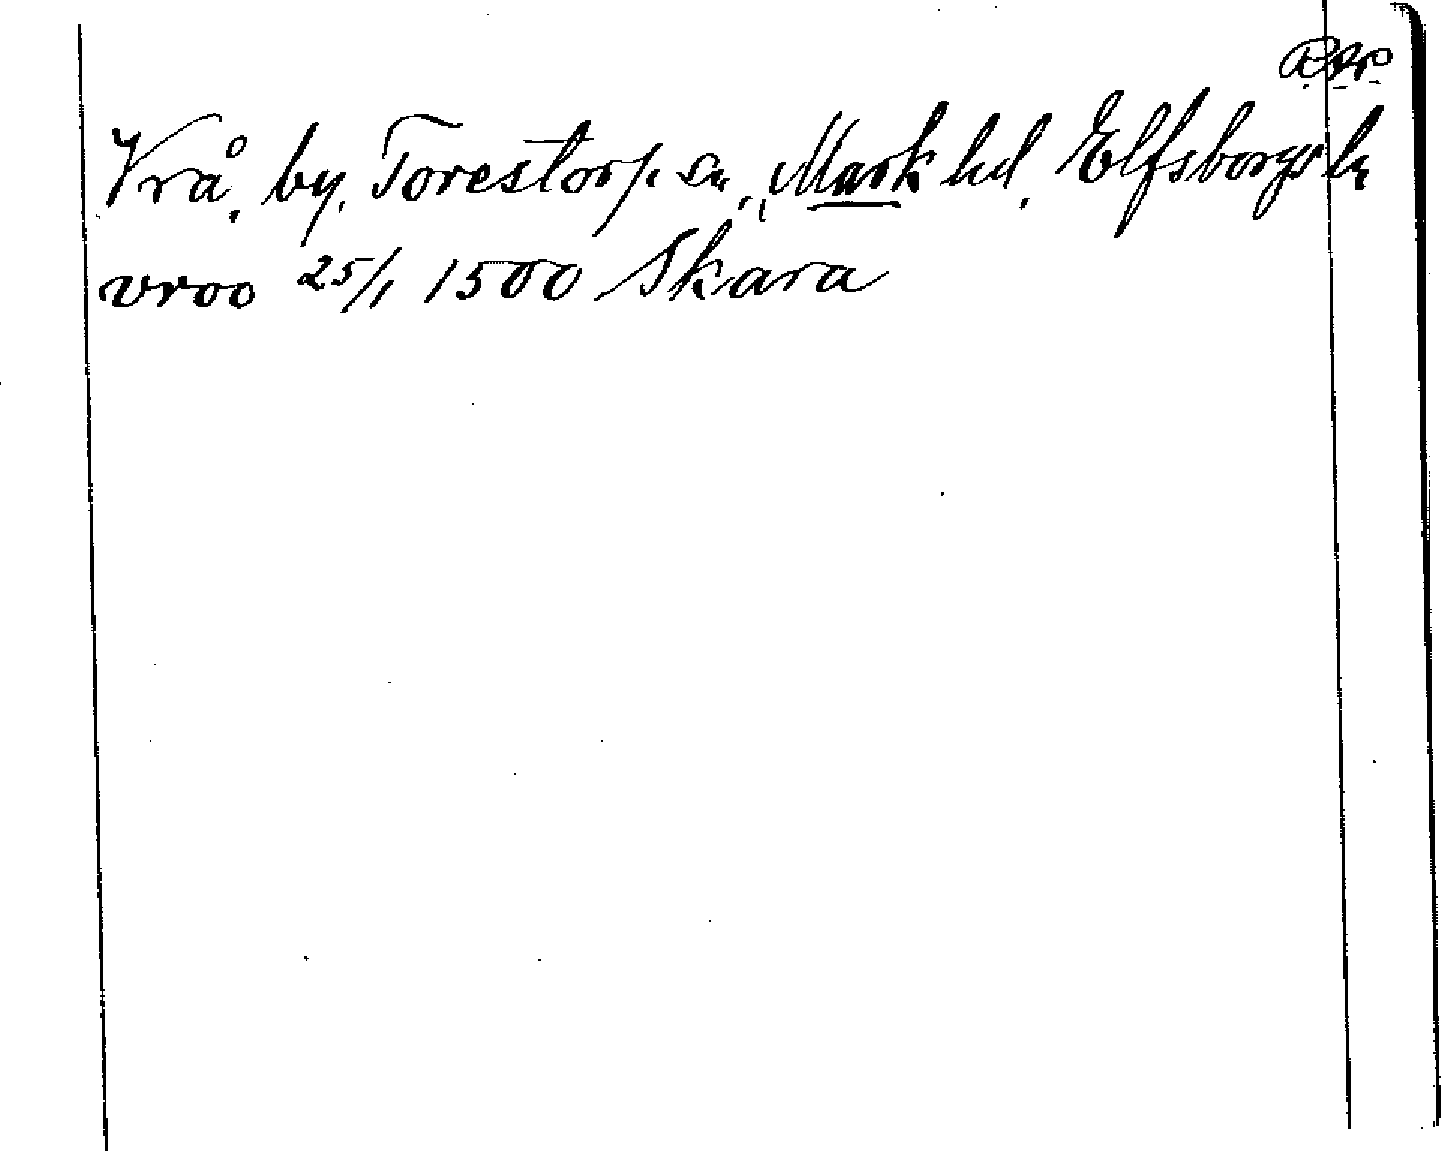 Vrå, by, Torestorp sn, Mark hd, Elfsborgs ln
vroo 25/1 1500 Skara